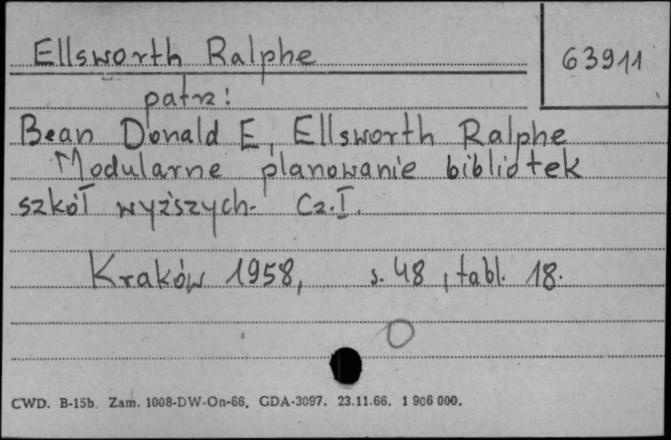 Ellsworth Ralphe
63911
patrz:
Bean Donald E, Ellsworth Ralphe
Modularne planowanie bibliotek
szkół wyższych. Cz. I.
Kraków 1958, s. 48, tabl. 18.
CWD. B-15b. Zam. 1008-DW-On-66. GDA-3097. 23.11.66. 1 906 000.